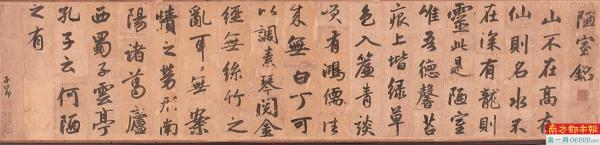 陋室銘
山不在高有
仙則名水不
在深有龍則
靈此是陋室
惟吾德馨苔
痕上堦綠草
色入簾青談
笑有鴻儒往
來無白丁可
以調素琴閱金
經無絲竹之
亂耳無案
牘之勞形南
陽諸葛廬
西蜀子雲亭
孔子云何陋
之有
子昂
南方都市報